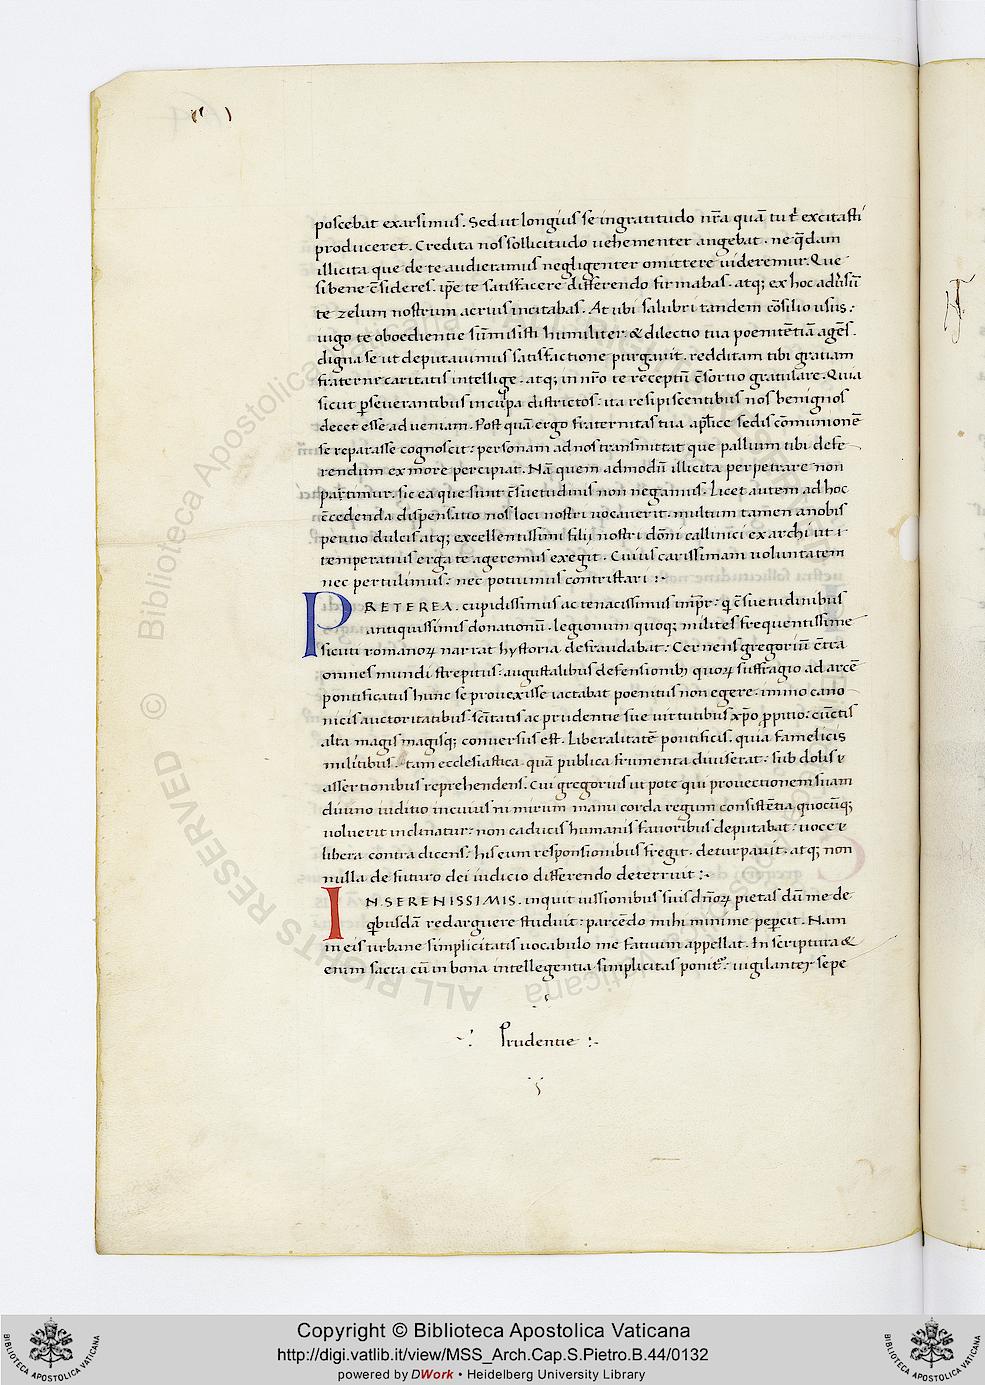 poscebat exarsimus. Sed ut longius se ingratitudo nr̄a quā tu t̄ excitasti
produceret. Credita nos sollicitudo uehementer angebat. ne q̄dam
illicita que de te audieramus negligenter omittere uideremur. Que
si bene c̄sideres. ip̄e te satisfacere differendo firmabas. atq; ex hoc
te zelum nostrum acrius incitabas. At ubi salubri tandem cōsilio usus:
iugo te oboedientie sūmisisti humiliter. & dilectio tua poenitētiā agēs.
digna se ut deputauimus satisfactione purgauit. redditam tibi gratiam
fraterne caritatis intellige. atq; in nr̄o te receptū c̄sortio gratulare. Quia
sicut p̱seuerantibus in culpa districtos: ita resipiscentibus nos benignos
decet esse ad ueniam. Post quā ergo fraternitas tua ap̄lice sedis cōmunionē
se reparasse cognoscit: personam ad nos transmittat que pallium tibi defe
rendum ex more percipiat. Nā quem admodū illicita perpetrare non
patimur. sic ea que sunt c̄suetudinis non negamus. Licet autem ad hoc
c̄cedenda dispensatio nos loci nostri uocauerit. multum tamen a nobis
petitio dulcis atq; excellentissimi filij nostri dōni callinici exarchi ut i
temperatius erga te ageremus exegit. Cuius carissimam uoluntatem
nec pertulimus: nec potuimus contristari :·
PRETEREA. cupidissimus ac tenacissimus imp̄r: q c̄suetudinibus
antiquissimis donationū. legionum quoq; milites frequentissime
sicuti romanoꝝ narrat hystoria defraudabat: Cernens gregoriū c̄tra
omnes mundi strepitus: augustalibus defensionibꝫ quoꝝ suffragio ad arcē
pontificatus hunc se prouexisse iactabat poenitus non egere. immo cano
nicis auctoritatibus sc̄itatis ac prudentie sue uirtutibus xp̄o ꝓpitio: cūctis
alta magis magisq; conuersus est. Liberalitatē pontificis. quia famelicis
militibus. tam ecclesiastica quā publica frumenta diuiserat: sub dolis
assertionibus reprehendens. Cui gregorius ut pote qui prouectionem suam
diuino iuditio in cuius ni mirum manu corda regum consistētia quocūq;
uoluerit inclinatur: non caducis humanis fauoribus deputabat: uoce
libera contra dicens: his eum responsionibus fregit. deturpauit. atq; non
nulla de futuro dei iudicio differendo deterruit :·
IN SERENISSIMIS. inquit iussionibus suis dn̄oꝝ pietas dū me de
q̱busdā redarguere studuit: parcēdo mihi minime pep̱cit. Nam
in eis urbane simplicitatis uocabulo me fatuum appellat. In scriptura &
enim sacra cū in bona intellegentia simplicitas ponit~: uigilanter sepe
Prudentie :·
© Biblioteca Apostolica Vaticana
ALL RIGHTS RESERVED
Copyright © Biblioteca Apostolica Vaticana
http://digi.vatlib.it/view/MSS_Arch.Cap.S.Pietro.B.44/0132
powered by DWork • Heidelberg University Library
BIBLIOTECA APOSTOLICA VATICANA
BIBLIOTECA APOSTOLICA VATICANA